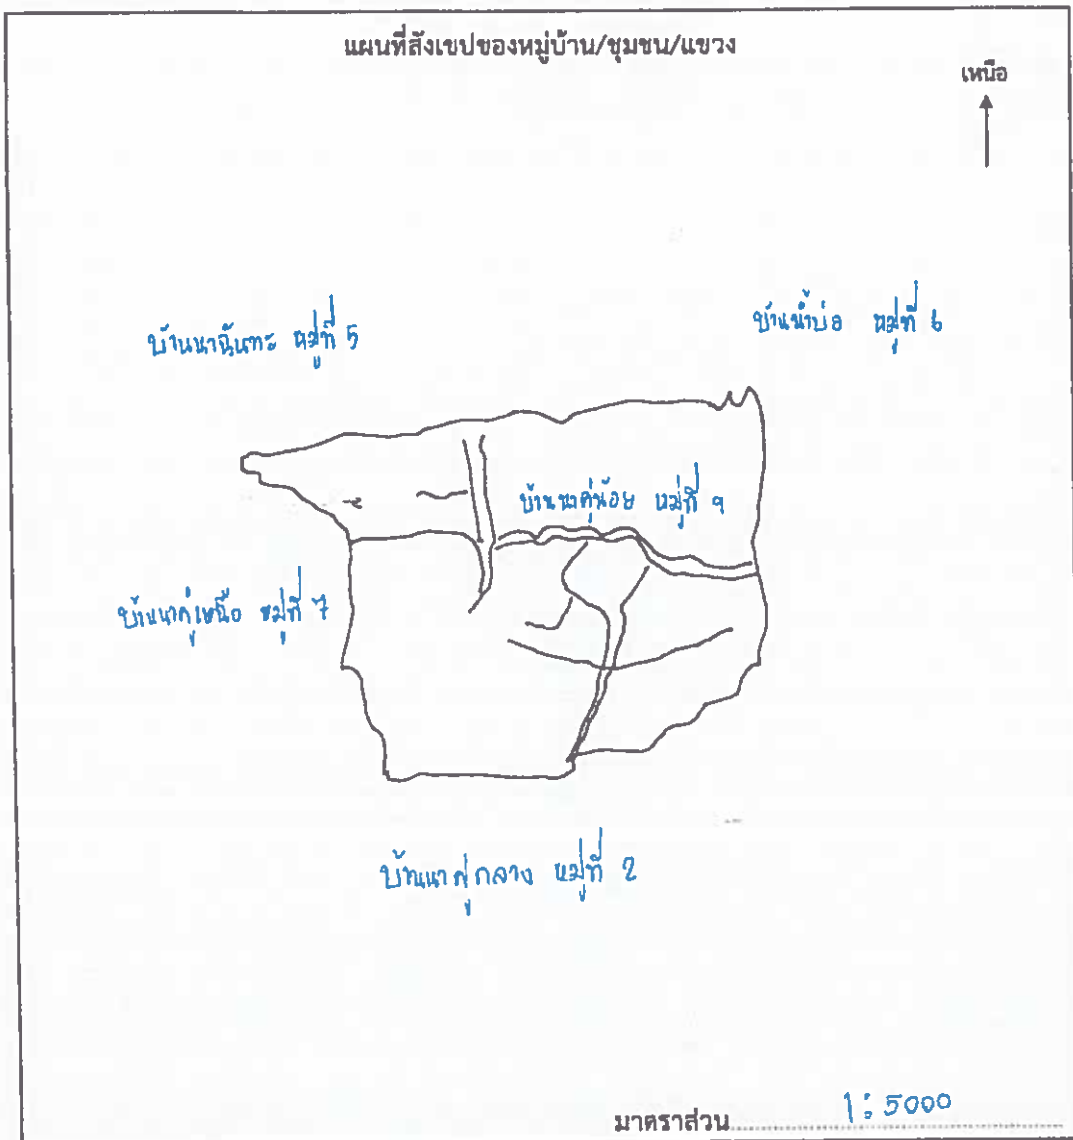 แผนที่สังเขปของหมู่บ้าน/ชุมชน/แขวง
เหนือ
บ้านนาฉันทะ หมู่ที่ 5
บ้านน้ำบ่อ หมู่ที่ 6
บ้านนาคู่น้อย หมู่ที่ 9
บ้านนาคู่เหนือ หมู่ที่ 7
บ้านนาคู่กลาง หมู่ที่ 2
มาตราส่วน 1:5000